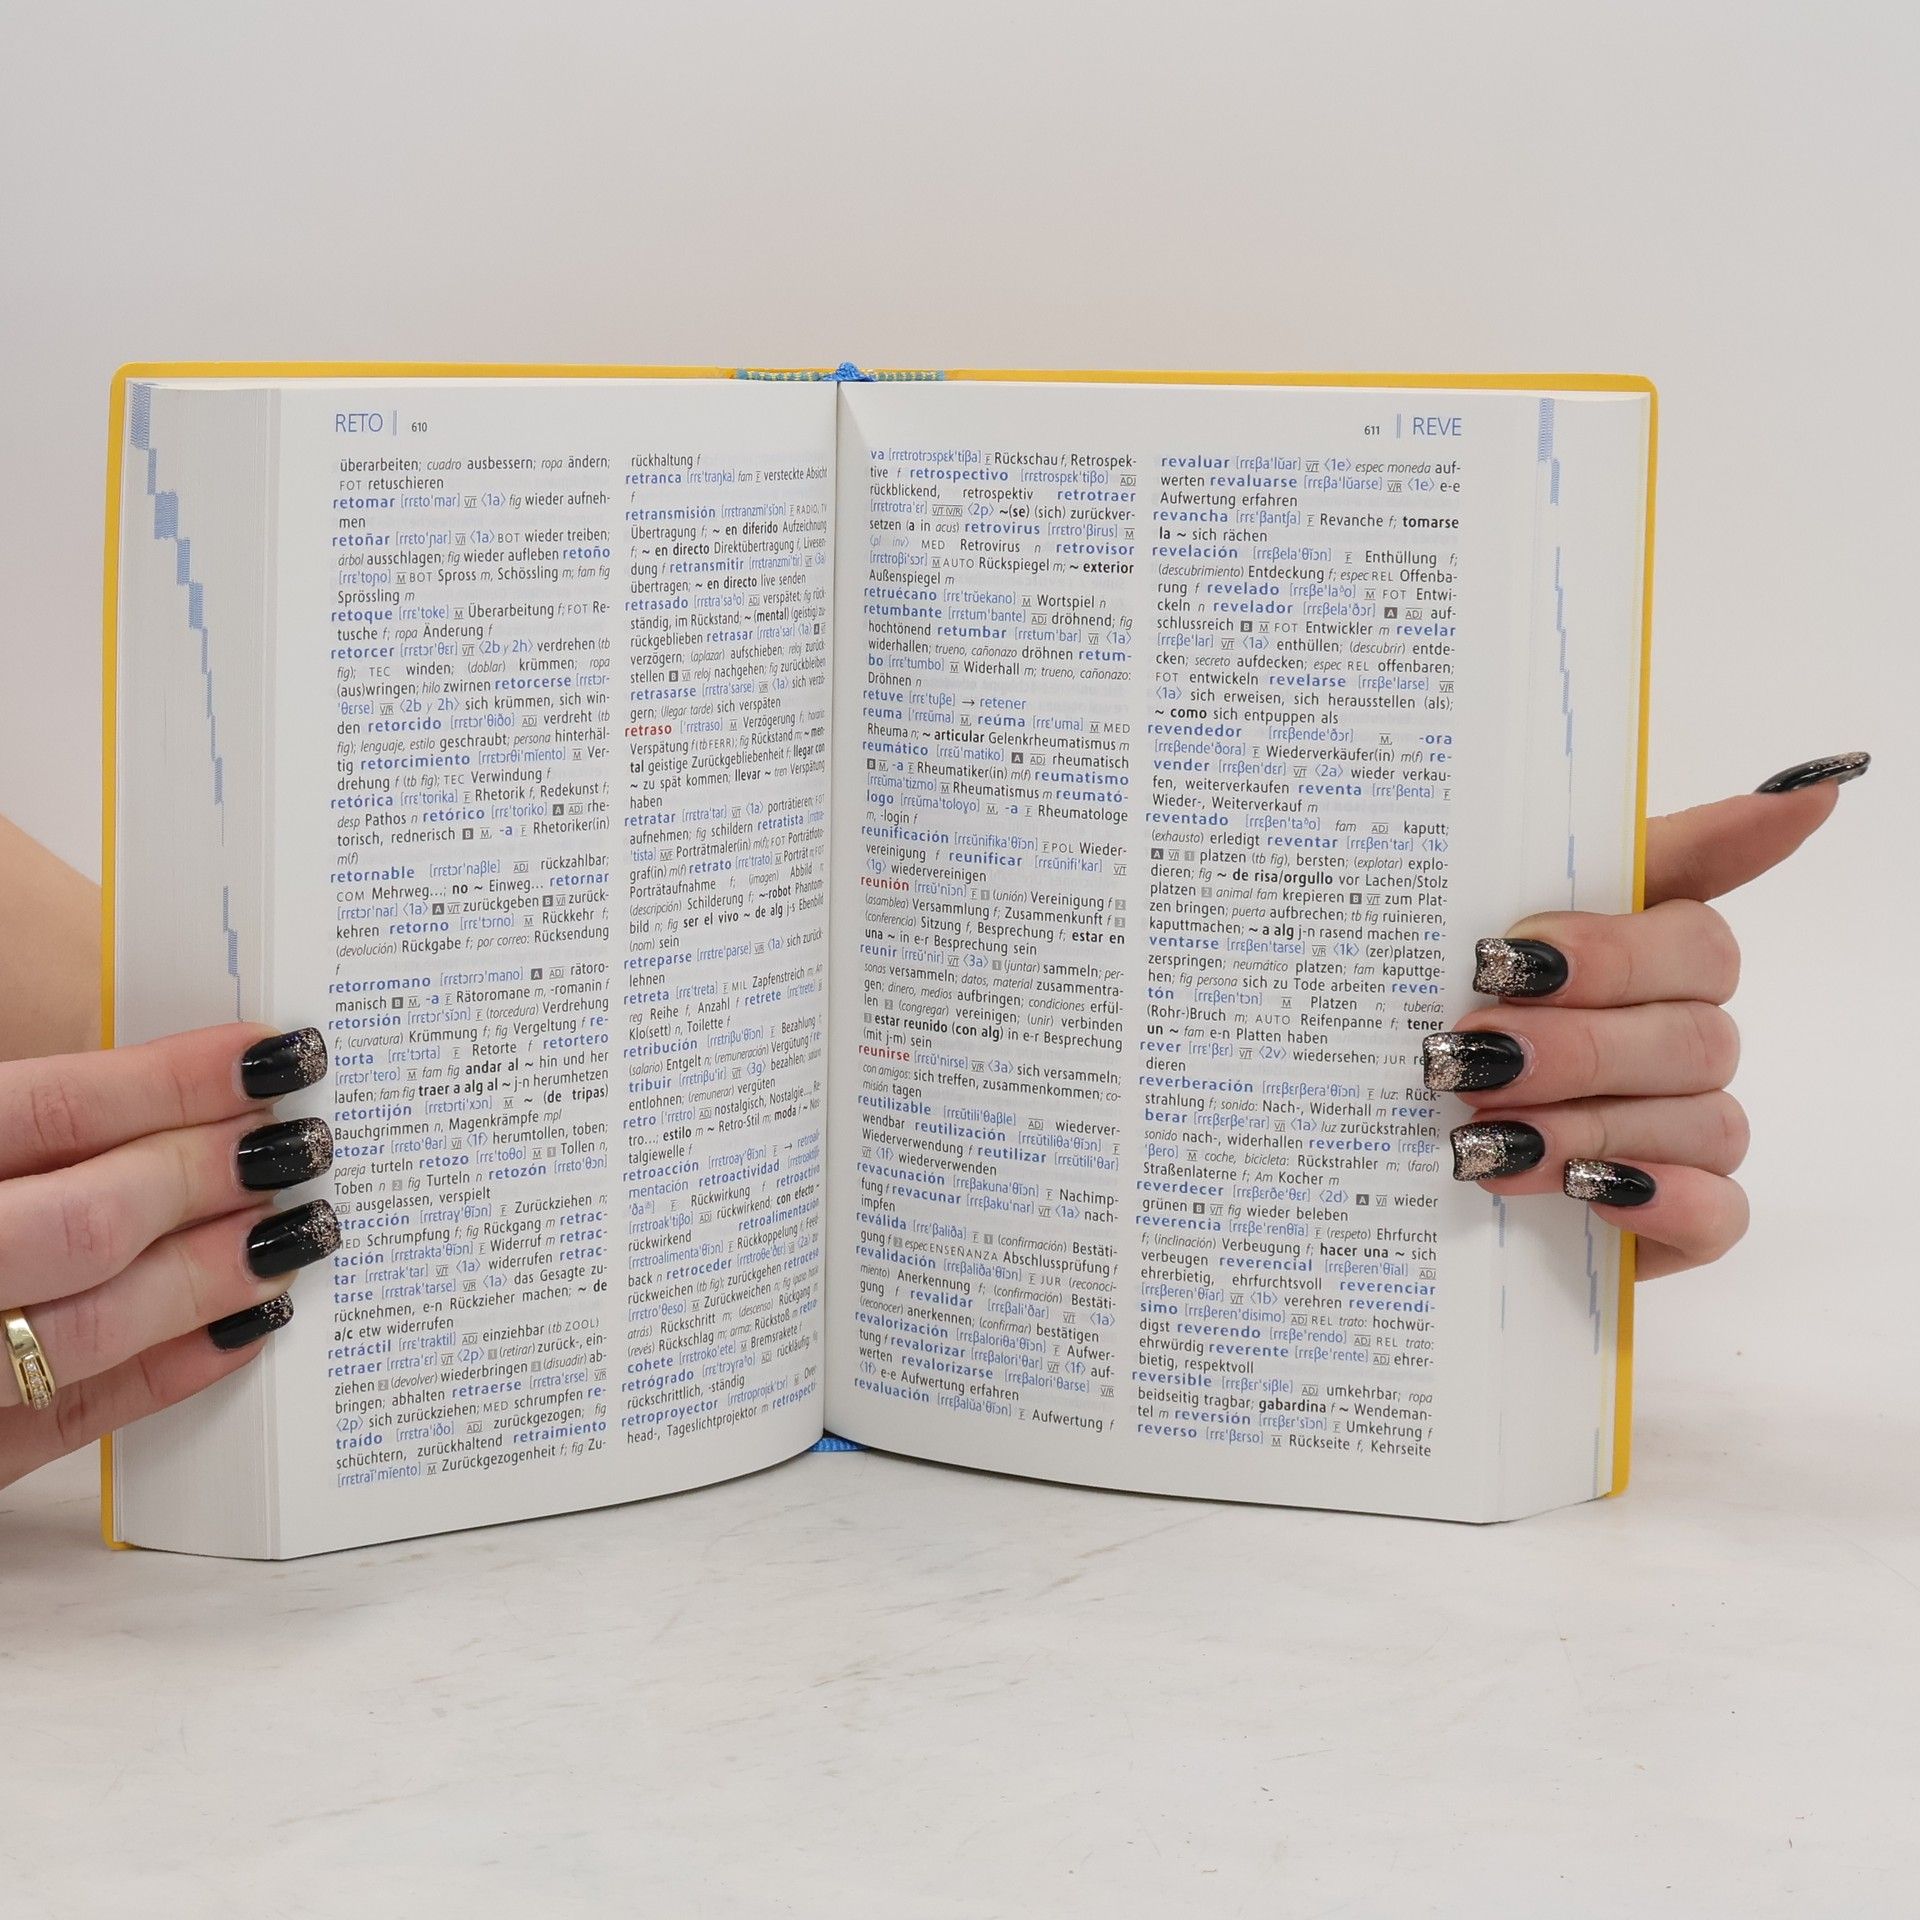 RETO 610
überarbeiten; cuadro ausbessern; ropa ändern;
FOT retuschieren
retomar [rrɛto'mar] V/T ⟨1a⟩ fig wieder aufneh-
men
retoñar [rrɛto'ɲar] V/I ⟨1a⟩ BOT wieder treiben;
árbol ausschlagen; fig wieder aufleben retoño
[rrɛ'toɲo] M BOT Spross m, Schössling m; fam fig
Sprössling m
retoque [rrɛ'toke] M Überarbeitung f; FOT Re-
tusche f; ropa Änderung f
retorcer [rrɛtɔr'θɛr] V/T ⟨2b y 2h⟩ verdrehen (tb
fig); TEC winden; (doblar) krümmen; ropa
(aus)wringen; hilo zwirnen retorcerse [rrɛtɔr-
'θɛrse] V/R ⟨2b y 2h⟩ sich krümmen, sich win-
den retorcido [rrɛtɔr'θiðo] ADJ verdreht (tb
fig); lenguaje, estilo geschraubt; persona hinterhäl-
tig retorcimiento [rrɛtɔrθi'mĭento] M Ver-
drehung f (tb fig); TEC Verwindung f
retórica [rrɛ'torika] F Rhetorik f, Redekunst f;
desp Pathos n retórico [rrɛ'toriko] A ADJ rhe-
torisch, rednerisch B M, -a F Rhetoriker(in)
m(f)
retornable [rrɛtɔr'naβle] ADJ rückzahlbar;
COM Mehrweg...; no ~ Einweg... retornar
[rrɛtɔr'nar] ⟨1a⟩ A V/T zurückgeben B V/I zurück-
kehren retorno [rrɛ'tɔrno] M Rückkehr f;
(devolución) Rückgabe f; por correo: Rücksendung
f
retorromano [rrɛtɔrrɔ'mano] A ADJ rätoro-
manisch B M, -a F Rätoromane m, -romanin f
retorsión [rrɛtɔr'sĭɔn] F (torcedura) Verdrehung
f; (curvatura) Krümmung f; fig Vergeltung f re-
torta [rrɛ'tɔrta] F Retorte f retortero
[rrɛtɔr'tero] M fam fig andar al ~ hin und her
laufen; fam fig traer a alg al ~ j-n herumhetzen
retortijón [rrɛtɔrti'xɔn] M ~ (de tripas)
Bauchgrimmen n, Magenkrämpfe mpl
etozar [rrɛto'θar] V/I ⟨1f⟩ herumtollen, toben;
pareja turteln retozo [rrɛ'toθo] M 1 Tollen n,
Toben n 2 fig Turteln n retozón [rrɛto'θɔn]
ADJ ausgelassen, verspielt
etracción [rrɛtraɣ'θĭɔn] F Zurückziehen n;
MED Schrumpfung f; fig Rückgang m retrac-
tación [rrɛtrakta'θĭɔn] F Widerruf m retrac-
tar [rrɛtrak'tar] V/T ⟨1a⟩ widerrufen retrac-
tarse [rrɛtrak'tarse] V/R ⟨1a⟩ das Gesagte zu-
rücknehmen, e-n Rückzieher machen; ~ de
a/c etw widerrufen
retráctil [rrɛ'traktil] ADJ einziehbar (tb ZOOL)
retraer [rrɛtra'ɛr] V/T ⟨2p⟩ 1 (retirar) zurück-, ein-
ziehen 2 (devolver) wiederbringen 3 (disuadir) ab-
bringen; abhalten retraerse [rrɛtra'ɛrse] V/R
⟨2p⟩ sich zurückziehen; MED schrumpfen re-
traído [rrɛtra'iðo] ADJ zurückgezogen; fig
schüchtern, zurückhaltend retraimiento
[rrɛtraĭ'mĭento] M Zurückgezogenheit f; fig Zu-
rückhaltung f
retranca [rrɛ'traŋka] fam F versteckte Absicht
f
retransmisión [rrɛtranzmi'sĭɔn] F RADIO, TV
Übertragung f; ~ en diferido Aufzeichnung
f; ~ en directo Direktübertragung f, Livesen-
dung f retransmitir [rrɛtranzmi'tir] V/T ⟨3a⟩
übertragen; ~ en directo live senden
retrasado [rrɛtra'saðo] ADJ verspätet; fig rück-
ständig, im Rückstand; ~ (mental) (geistig) zu-
rückgeblieben retrasar [rrɛtra'sar] ⟨1a⟩ A V/T
verzögern; (aplazar) aufschieben; reloj zurück-
stellen B V/I reloj nachgehen; fig zurückbleiben
retrasarse [rrɛtra'sarse] V/R ⟨1a⟩ sich verzö-
gern; (llegar tarde) sich verspäten
retraso [rrɛ'traso] M Verzögerung f; horario
Verspätung f (tb FERR); fig Rückstand m; ~ men-
tal geistige Zurückgebliebenheit f; llegar con
~ zu spät kommen; llevar ~ tren Verspätung
haben
retratar [rrɛtra'tar] V/T ⟨1a⟩ porträtieren; FOT
aufnehmen; fig schildern retratista [rrɛtra-
'tista] M/F Porträtmaler(in) m(f); FOT Porträtfoto-
graf(in) m(f) retrato [rrɛ'trato] M Porträt n; FOT
Porträtaufnahme f; (imagen) Abbild n;
(descripción) Schilderung f; ~-robot Phantom-
bild n; fig ser el vivo ~ de alg j-s Ebenbild
(nom) sein
retreparse [rrɛtre'parse] V/R ⟨1a⟩ sich zurück-
lehnen
retreta [rrɛ'treta] F MIL Zapfenstreich m; Am
reg Reihe f, Anzahl f retrete [rrɛ'trete] M
Klo(sett) n, Toilette f
retribución [rrɛtriβu'θĭɔn] F Bezahlung f;
(salario) Entgelt n; (remuneración) Vergütung f re-
tribuir [rrɛtriβu'ir] V/T ⟨3g⟩ bezahlen; salario
entlohnen; (remunerar) vergüten
retro ['rrɛtro] ADJ nostalgisch, Nostalgie..., Re-
tro...; estilo m ~ Retro-Stil m; moda f ~ Nos-
talgiewelle f
retroacción [rrɛtroaɣ'θĭɔn] F → retroali-
mentación retroactividad [rrɛtroaktiβi-
'ðað] F Rückwirkung f retroactivo
[rrɛtroak'tiβo] ADJ rückwirkend; con efecto ~
rückwirkend retroalimentación
[rrɛtroalimenta'θĭɔn] F Rückkoppelung f, Feed-
back n retroceder [rrɛtroθe'ðɛr] V/I ⟨2a⟩ zu-
rückweichen (tb fig); zurückgehen retroceso
[rrɛtro'θeso] M Zurückweichen n; fig (paso hacia
atrás) Rückschritt m; (descenso) Rückgang m;
(revés) Rückschlag m; arma: Rückstoß m retro-
cohete [rrɛtroko'ete] M Bremsrakete f
retrógrado [rrɛ'troɣraðo] ADJ rückläufig; fig
rückschrittlich, -ständig
retroproyector [rrɛtroprojɛk'tɔr] M Over-
head-, Tageslichtprojektor m retrospecti-
611 REVE
va [rrɛtrotrɔspɛk'tiβa] F Rückschau f, Retrospek-
tive f retrospectivo [rrɛtrospɛk'tiβo] ADJ
rückblickend, retrospektiv retrotraer
[rrɛtrotra'ɛr] V/T (V/R) ⟨2p⟩ ~(se) (sich) zurückver-
setzen (a in acus) retrovirus [rrɛtro'βirus] M
⟨pl inv⟩ MED Retrovirus n retrovisor
[rrɛtroβi'sɔr] M AUTO Rückspiegel m; ~ exterior
Außenspiegel m
retruécano [rrɛ'trŭekano] M Wortspiel n
retumbante [rrɛtum'bante] ADJ dröhnend; fig
hochtönend retumbar [rrɛtum'bar] V/I ⟨1a⟩
widerhallen; trueno, cañonazo dröhnen retum-
bo [rrɛ'tumbo] M Widerhall m; trueno, cañonazo:
Dröhnen n
retuve [rrɛ'tuβe] → retener
reuma ['rrɛŭma] M, reúma [rrɛ'uma] M MED
Rheuma n; ~ articular Gelenkrheumatismus m
reumático [rrɛŭ'matiko] A ADJ rheumatisch
B M, -a F Rheumatiker(in) m(f) reumatismo
[rrɛŭma'tizmo] M Rheumatismus m reumató-
logo [rrɛŭma'toloɣo] M, -a F Rheumatologe
m, -login f
reunificación [rrɛŭnifika'θĭɔn] F POL Wieder-
vereinigung f reunificar [rrɛŭnifi'kar] V/T
⟨1g⟩ wiedervereinigen
reunión [rrɛŭ'nĭɔn] F 1 (unión) Vereinigung f 2
(asamblea) Versammlung f; Zusammenkunft f 3
(conferencia) Sitzung f, Besprechung f; estar en
una ~ in e-r Besprechung sein
reunir [rrɛŭ'nir] V/T ⟨3a⟩ 1 (juntar) sammeln; per-
sonas versammeln; datos, material zusammentra-
gen; dinero, medios aufbringen; condiciones erfül-
len 2 (congregar) vereinigen; (unir) verbinden
3 estar reunido (con alg) in e-r Besprechung
(mit j-m) sein
reunirse [rrɛŭ'nirse] V/R ⟨3a⟩ sich versammeln;
con amigos: sich treffen, zusammenkommen; co-
misión tagen
reutilizable [rrɛŭtili'θaβle] ADJ wiederver-
wendbar reutilización [rrɛŭtiliθa'θĭɔn] F
Wiederverwendung f reutilizar [rrɛŭtili'θar]
V/T ⟨1f⟩ wiederverwenden
revacunación [rrɛβakuna'θĭɔn] F Nachimp-
fung f revacunar [rrɛβaku'nar] V/T ⟨1a⟩ nach-
impfen
reválida [rrɛ'βaliða] F 1 (confirmación) Bestäti-
gung f 2 espec ENSEÑANZA Abschlussprüfung f
revalidación [rrɛβaliða'θĭɔn] F JUR (reconoci-
miento) Anerkennung f; (confirmación) Bestäti-
gung f revalidar [rrɛβali'ðar] V/T ⟨1a⟩
(reconocer) anerkennen; (confirmar) bestätigen
revalorización [rrɛβaloriθa'θĭɔn] F Aufwer-
tung f revalorizar [rrɛβalori'θar] V/T ⟨1f⟩ auf-
werten revalorizarse [rrɛβalori'θarse] V/R
⟨1f⟩ e-e Aufwertung erfahren
revaluación [rrɛβalŭa'θĭɔn] F Aufwertung f
revaluar [rrɛβa'lŭar] V/T ⟨1e⟩ espec moneda auf-
werten revaluarse [rrɛβa'lŭarse] V/R ⟨1e⟩ e-e
Aufwertung erfahren
revancha [rrɛ'βantʃa] F Revanche f; tomarse
la ~ sich rächen
revelación [rrɛβela'θĭɔn] F Enthüllung f;
(descubrimiento) Entdeckung f; espec REL Offenba-
rung f revelado [rrɛβe'laðo] M FOT Entwi-
ckeln n revelador [rrɛβela'ðɔr] A ADJ auf-
schlussreich B M FOT Entwickler m revelar
[rrɛβe'lar] V/T ⟨1a⟩ enthüllen; (descubrir) entde-
cken; secreto aufdecken; espec REL offenbaren;
FOT entwickeln revelarse [rrɛβe'larse] V/R
⟨1a⟩ sich erweisen, sich herausstellen (als);
~ como sich entpuppen als
revendedor [rrɛβende'ðɔr] M, -ora
[rrɛβende'ðora] F Wiederverkäufer(in) m(f) re-
vender [rrɛβen'dɛr] V/T ⟨2a⟩ wieder verkau-
fen, weiterverkaufen reventa [rrɛ'βenta] F
Wieder-, Weiterverkauf m
reventado [rrɛβen'taðo] fam ADJ kaputt;
(exhausto) erledigt reventar [rrɛβen'tar] ⟨1k⟩
A V/I 1 platzen (tb fig), bersten; (explotar) explo-
dieren; fig ~ de risa/orgullo vor Lachen/Stolz
platzen 2 animal fam krepieren B V/T zum Plat-
zen bringen; puerta aufbrechen; tb fig ruinieren,
kaputtmachen; ~ a alg j-n rasend machen re-
ventarse [rrɛβen'tarse] V/R ⟨1k⟩ (zer)platzen,
zerspringen; neumático platzen; fam kaputtge-
hen; fig persona sich zu Tode arbeiten reven-
tón [rrɛβen'tɔn] M Platzen n; tubería:
(Rohr-)Bruch m; AUTO Reifenpanne f; tener
un ~ fam e-n Platten haben
rever [rrɛ'βɛr] V/T ⟨2v⟩ wiedersehen; JUR re
dieren
reverberación [rrɛβɛrβera'θĭɔn] F luz: Rück-
strahlung f; sonido: Nach-, Widerhall m rever-
berar [rrɛβɛrβe'rar] V/I ⟨1a⟩ luz zurückstrahlen;
sonido nach-, widerhallen reverbero [rrɛβɛr-
'βero] M coche, bicicleta: Rückstrahler m; (farol)
Straßenlaterne f; Am Kocher m
reverdecer [rrɛβɛrðe'θɛr] ⟨2d⟩ A V/I wieder
grünen B V/I fig wieder beleben
reverencia [rrɛβe'renθĭa] F (respeto) Ehrfurcht
f; (inclinación) Verbeugung f; hacer una ~ sich
verbeugen reverencial [rrɛβeren'θĭal] ADJ
ehrerbietig, ehrfurchtsvoll reverenciar
[rrɛβeren'θĭar] V/T ⟨1b⟩ verehren reverendí-
simo [rrɛβeren'disimo] ADJ REL trato: hochwür-
digst reverendo [rrɛβe'rendo] ADJ REL trato:
ehrwürdig reverente [rrɛβe'rente] ADJ ehrer-
bietig, respektvoll
reversible [rrɛβɛr'siβle] ADJ umkehrbar; ropa
beidseitig tragbar; gabardina f ~ Wendeman-
tel m reversión [rrɛβɛr'sĭɔn] F Umkehrung f
reverso [rrɛ'βɛrso] M Rückseite f, Kehrseite